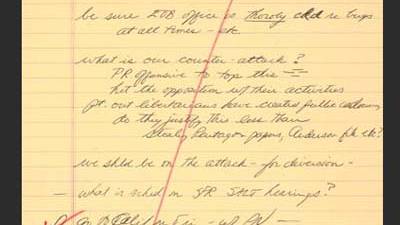 be sure EOB office is thoroly ckd re bugs
at all times - etc.
what is our counter-attack?
PR offensive to top this --
hit the opposition w/ their activities
pt. out libertarians have created public
do they justify this less than
stealing Pentagon papers, Anderson file etc?
we shld be on the attack - for diversion -
- what is sched on SFR SALT hearings?